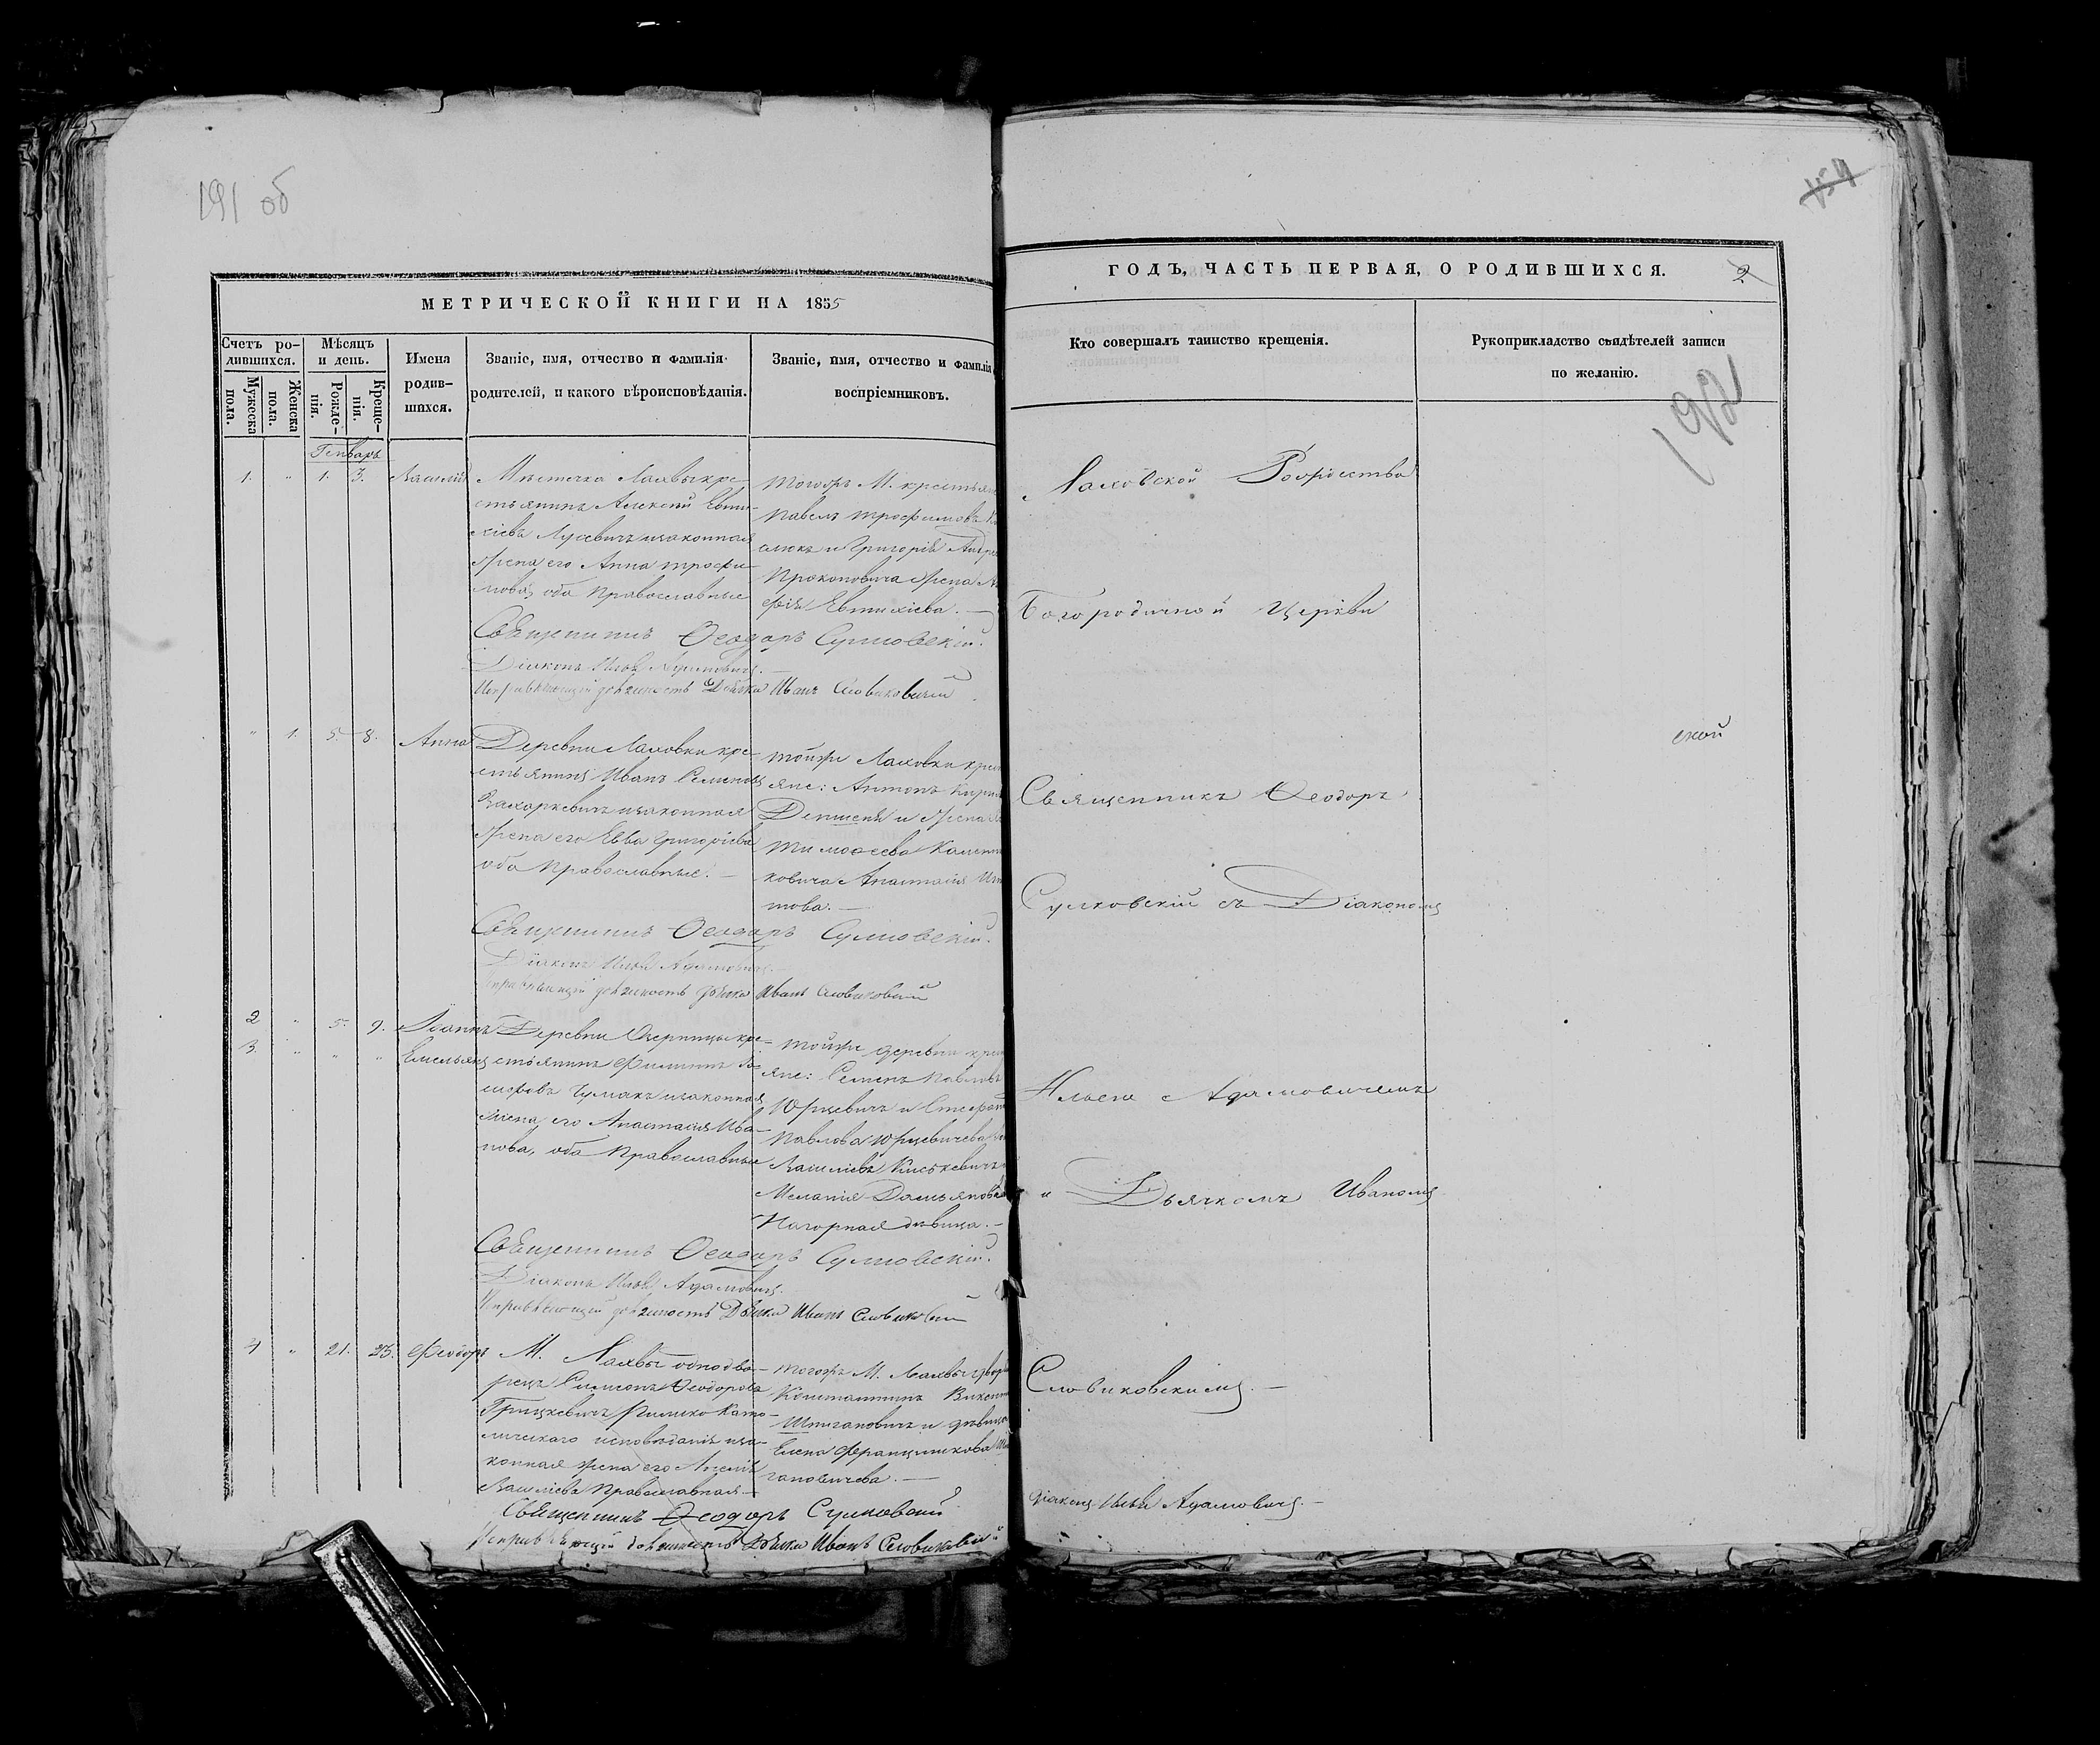 191 об
МЕТРИЧЕСКОЙ КНИГИ НА 1855
Счетъ ро-
дившихся.
Мужеска
пола.
Женска
пола.
Мѣсяцъ
и день.
Рожде-
нія.
Креще-
нія.
Имена
родив-
шихся.
Званіе, имя, отчество и фамилія
родителей, и какого вѣроисповѣданія.
Званіе, имя, отчество и фамилія
воспріемниковъ.
Генварь
1. " 1. 3. Василій
Мѣстечка Лахвы кре-
стьянинъ Алексій Евти-
хіевъ Лусевичъ и законная
жена его Анна Трофи-
мова, оба Православные
тогожъ М. крестьян
Павелъ Трофимовъ
и Григорія Андре
Прокоповича жена
Евтихіева. —
Священникъ Ѳеодоръ Сулковскій.
Діаконъ Илья Адамовичъ.
Исправляющій должность Дьячка Иванъ Словиковскій
" 1. 5. 8. Анна
Деревни Лаховки кре-
стьянинъ Иванъ Семеновъ
Захаркевичъ и законная
жена его Евва Григоріева
оба Православные. —
тойже Лаховки крест
яне: Антонъ Кирил
и жена
Тимоѳеева
ковича Анастасія Иг
това. —
Священникъ Ѳеодоръ Сулковскій.
Діаконъ Илья Адамовичъ.
Исправляющій должность Дьячка Иванъ Словиковскій
2 " 5. 9. Іоаннъ
3. " " " Емельянъ
Деревни кре-
стьянинъ Филиппъ
Чумакъ и законная
жена его Анастасія Ива-
нова, оба Православные
тойже деревни крест
яне: Семенъ Павловъ
Юрцевичъ и
Павлова Юрцевичева
Василіевъ
Меланія Дамьянова
Нагорная дѣвица. —
Священникъ Ѳеодоръ Сулковскій.
Діаконъ Илья Адамовичъ.
Исправляющій должность Дьячка Иванъ Словиковскій
4 " 21. 25. Феодоръ
М. Лахвы однодво-
рецъ Симеонъ Ѳеодоровъ
Грицкевичъ Римско Като-
лическаго исповѣданія и за-
конная жена его
Василіева Православная —
тогожъ М. Лахвы двор
Константинъ Викент
Шпигановичъ и дѣвица
Елена Францишкова Шпи
гановичева. —
Священникъ Ѳеодоръ Сулковскій
Исправляющій должность Дьячка Иванъ Словиковскій
154
ГОДЪ, ЧАСТЬ ПЕРВАЯ, О РОДИВШИХСЯ.
2
Кто совершалъ таинство крещенія.
Рукоприкладство свидѣтелей записи
по желанію.
192
Лаховской Рождество
Богородичной Церкви
ской
Священникъ Ѳеодоръ
Сулковскій съ Діакономъ
Ильею Адамовичемъ
и Дьячкомъ Иваномъ
Словиковскимъ. —
Діаконъ Илья Адамовичъ. —